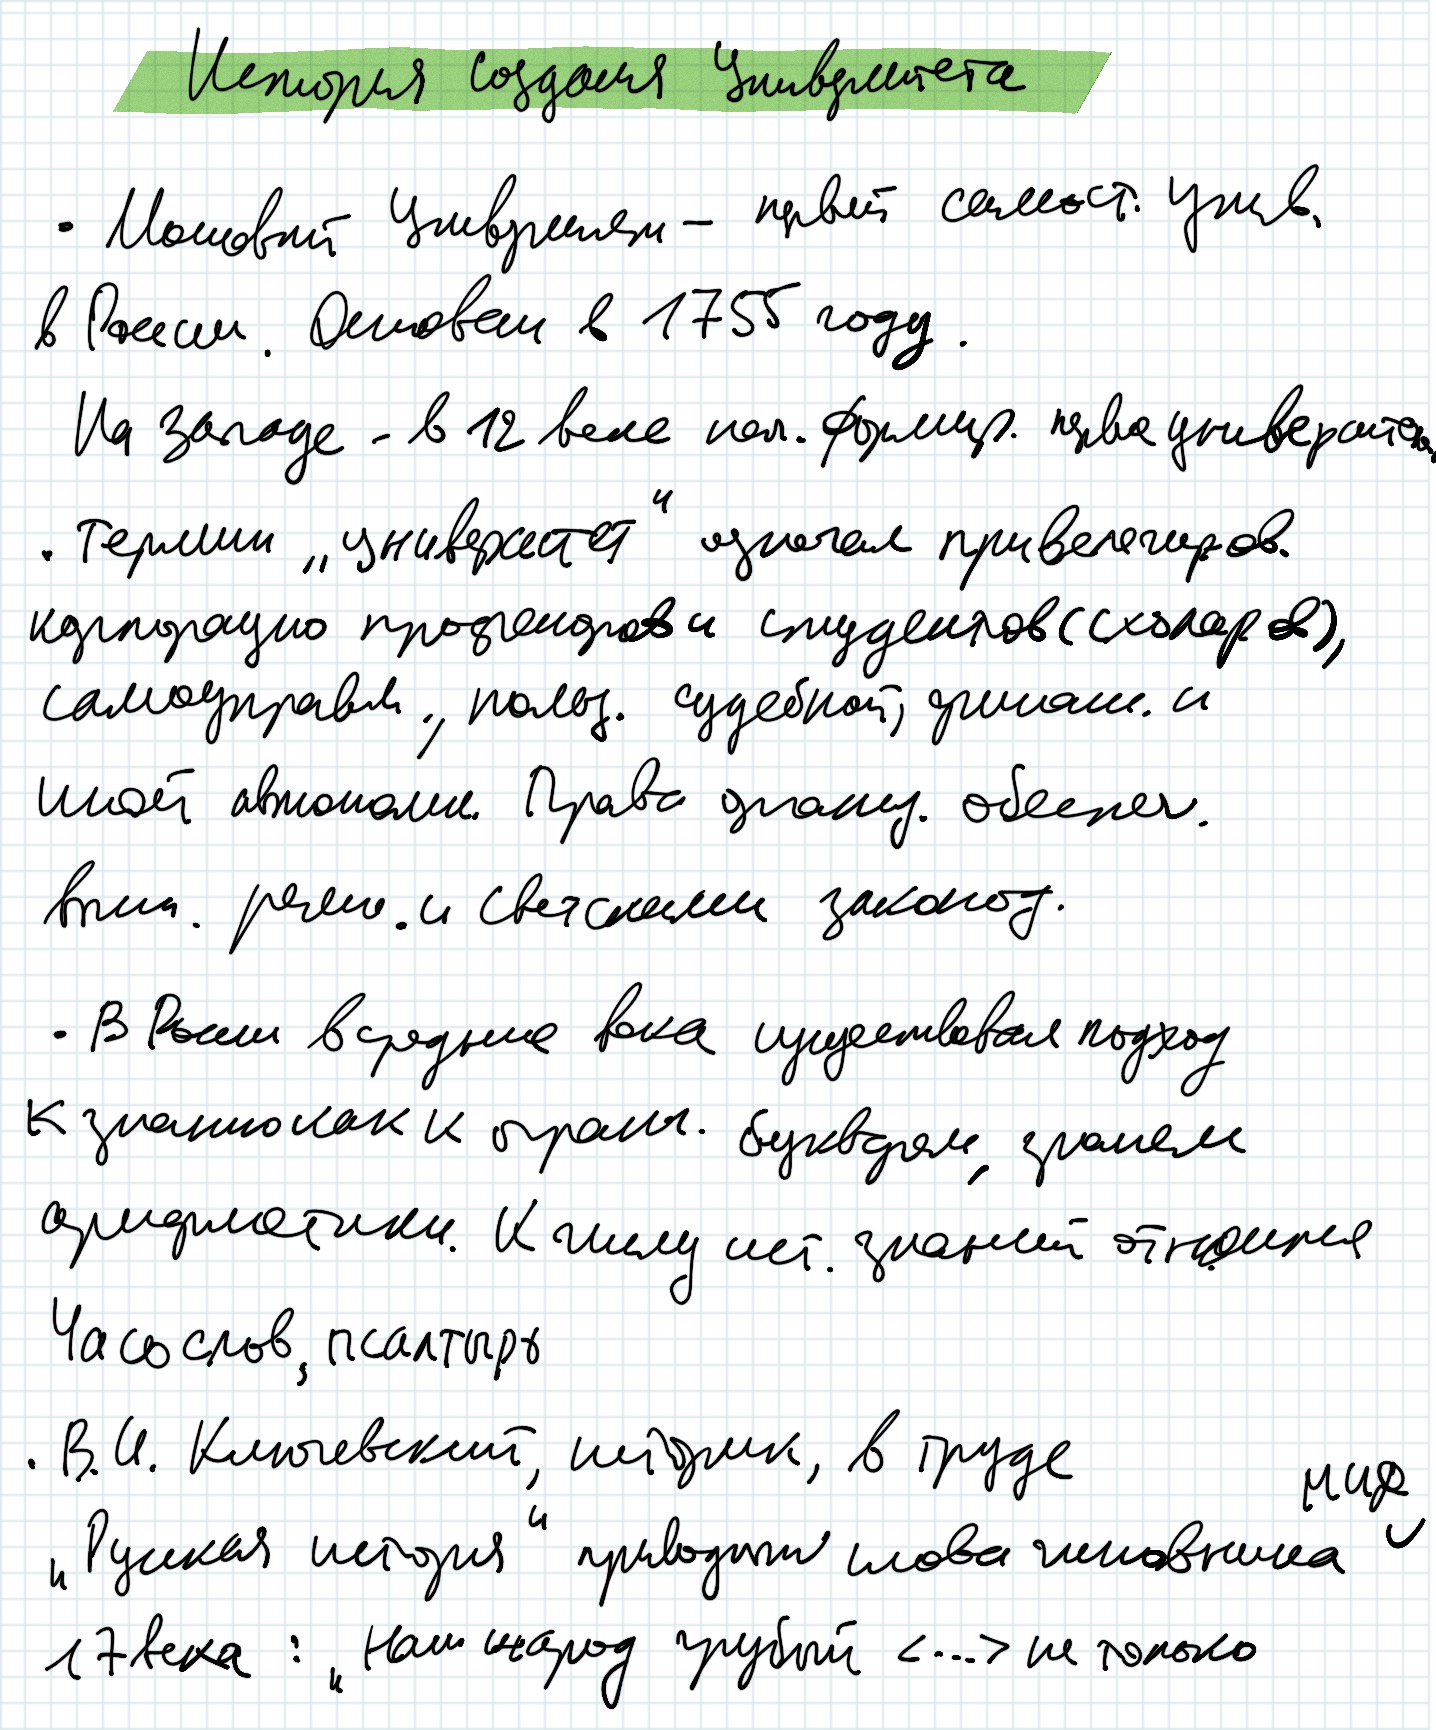 История создания Университета
· Московский Университет – первый самост. Унив.
в России. Основан в 1755 году.
На западе – в 12 веке нач. формир. первые университеты
· Термин „университет“ означал привелегиров.
корпорацию профессоров и студентов (схоларов),
самоуправл., польз. судебной, финанс. и
иной автономи. Права граници. обеспеч.
высш. религ. и светскими законод.
· В России в средние века существовал подход
к знанию как к огранич. букварем, знанием
арифматики. К числу ист. знаний относился
Часослов, псалтырь
· В.И. Ключевский, историк, в труде
МИД
„Русская история“ приводит слова чиновника
17 века : „Наш народ грубый <...> не только